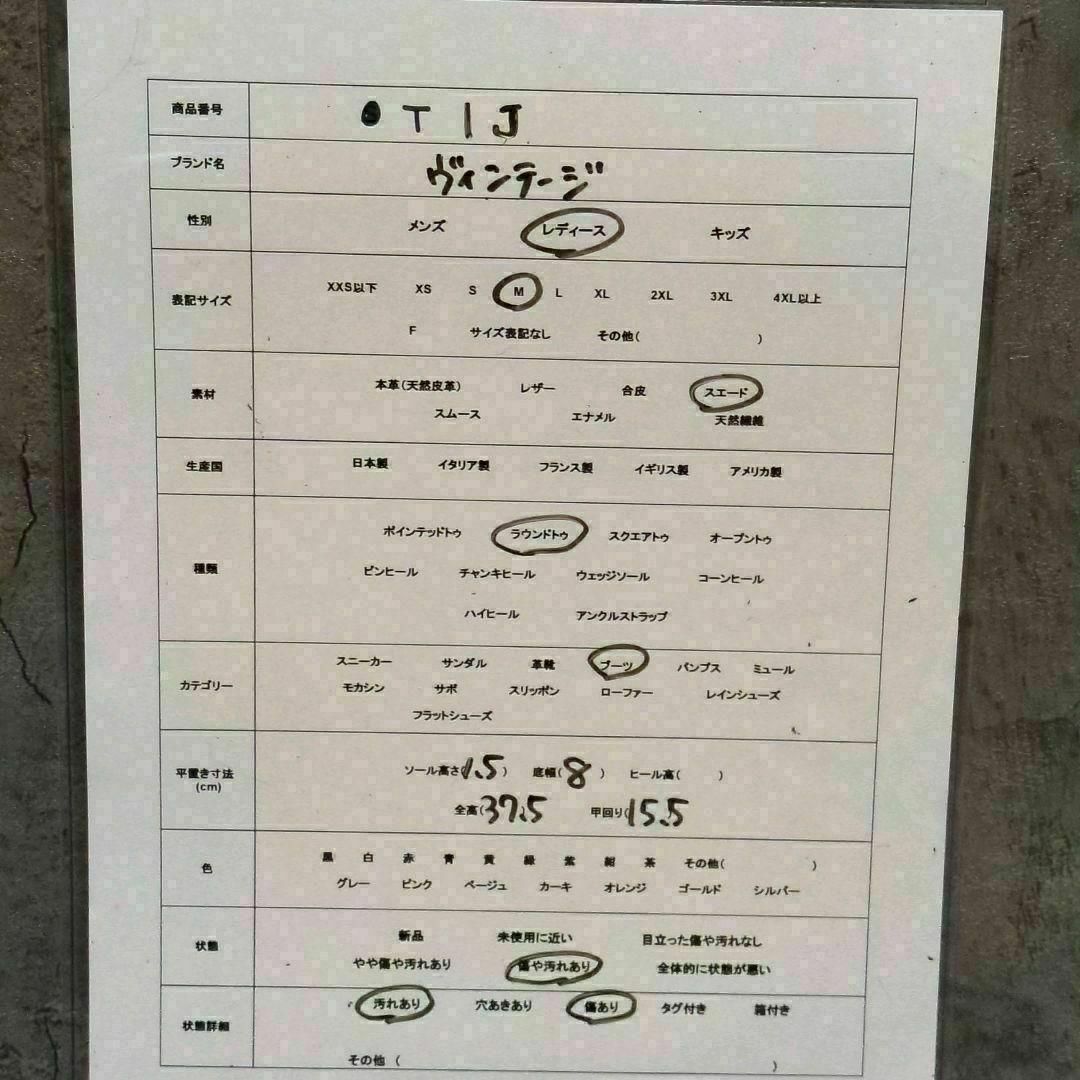 商品番号 0T1J
ブランド名 ヴィンテージ
性別 メンズ レディース キッズ
表記サイズ XXS以下 XS S M L XL 2XL 3XL 4XL以上
F サイズ表記なし その他( )
素材 本革(天然皮革) レザー 合皮 スエード
スムース エナメル 天然繊維
生産国 日本製 イタリア製 フランス製 イギリス製 アメリカ製
種類 ポインテッドトゥ ラウンドトゥ スクエアトゥ オープントゥ
ピンヒール チャンキヒール ウェッジソール コーンヒール
ハイヒール アンクルストラップ
カテゴリー スニーカー サンダル 革靴 ブーツ パンプス ミュール
モカシン サボ スリッポン ローファー レインシューズ
フラットシューズ
平置き寸法 (cm) ソール高さ(1.5) 底幅(8) ヒール高( )
全高(37.5 甲回り(15.5
色 黒 白 赤 青 黄 緑 紫 紺 茶 その他( )
グレー ピンク ベージュ カーキ オレンジ ゴールド シルバー
状態 新品 未使用に近い 目立った傷や汚れなし
やや傷や汚れあり 傷や汚れあり 全体的に状態が悪い
状態詳細 汚れあり 穴あきあり 傷あり タグ付き 箱付き
その他 ( )